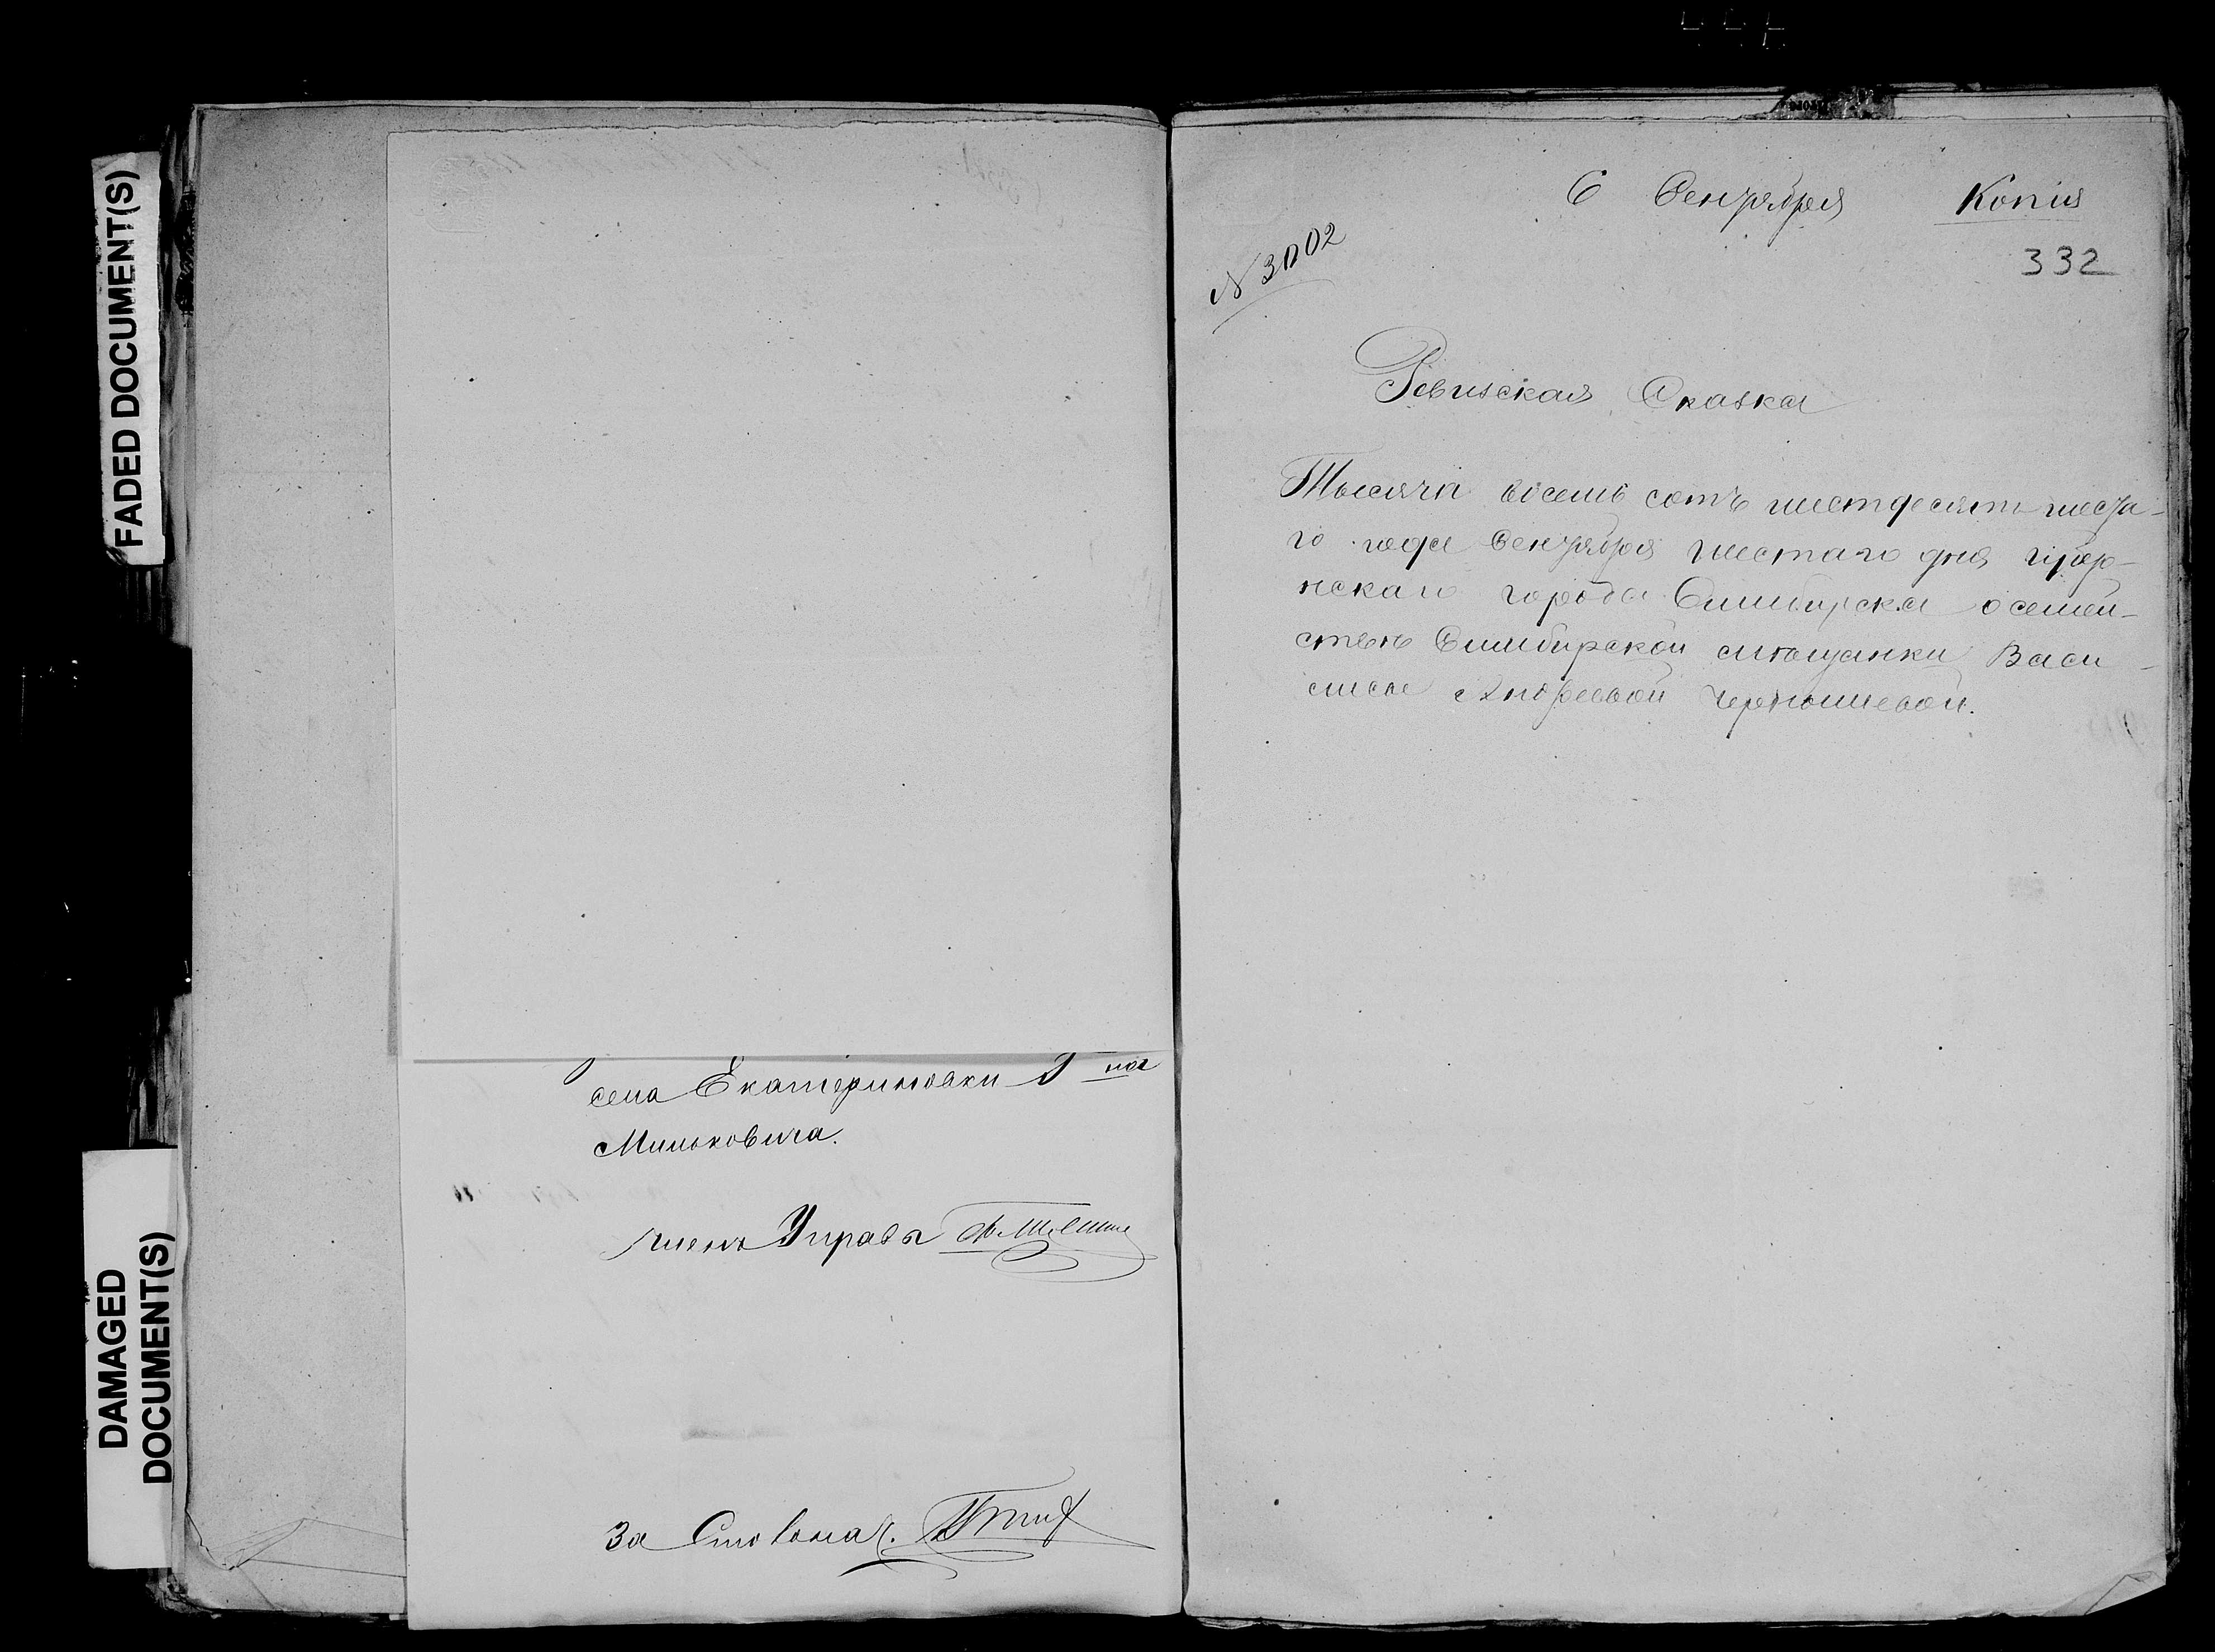 FADED DOCUMENT(S)
DAMAGED
DOCUMENT(S)
села Екатериновки Г на
Мильковича.
Членъ Управы
За Столонач.
6 Сентября Копія
332
№ 3002
Ревизская Сказка
Тысяча восемь сотъ шестдесятъ шеста-
го года Сентября шестаго дня губер-
нскаго города Симбирска о семей-
ствѣ Симбирской мѣщанки Васи-
лисы Андреевой Чернышевой.